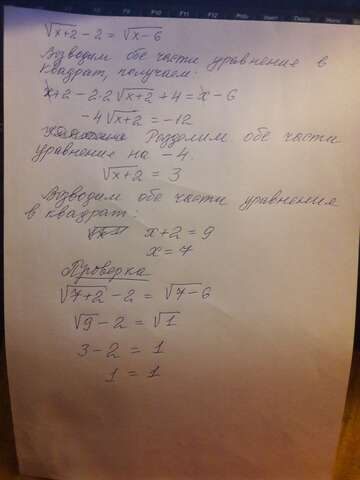 √x+2 - 2 = √x-6
Возведём обе части уравнения в
квадрат, получаем:
x+2 - 2·2√x+2 + 4 = x - 6
-4√x+2 = -12
Разделим обе части
уравнения на -4.
√x+2 = 3
Возведём обе части уравнения
в квадрат:
x+2 = 9
x = 7
Проверка
√7+2 - 2 = √7-6
√9 - 2 = √1
3 - 2 = 1
1 = 1